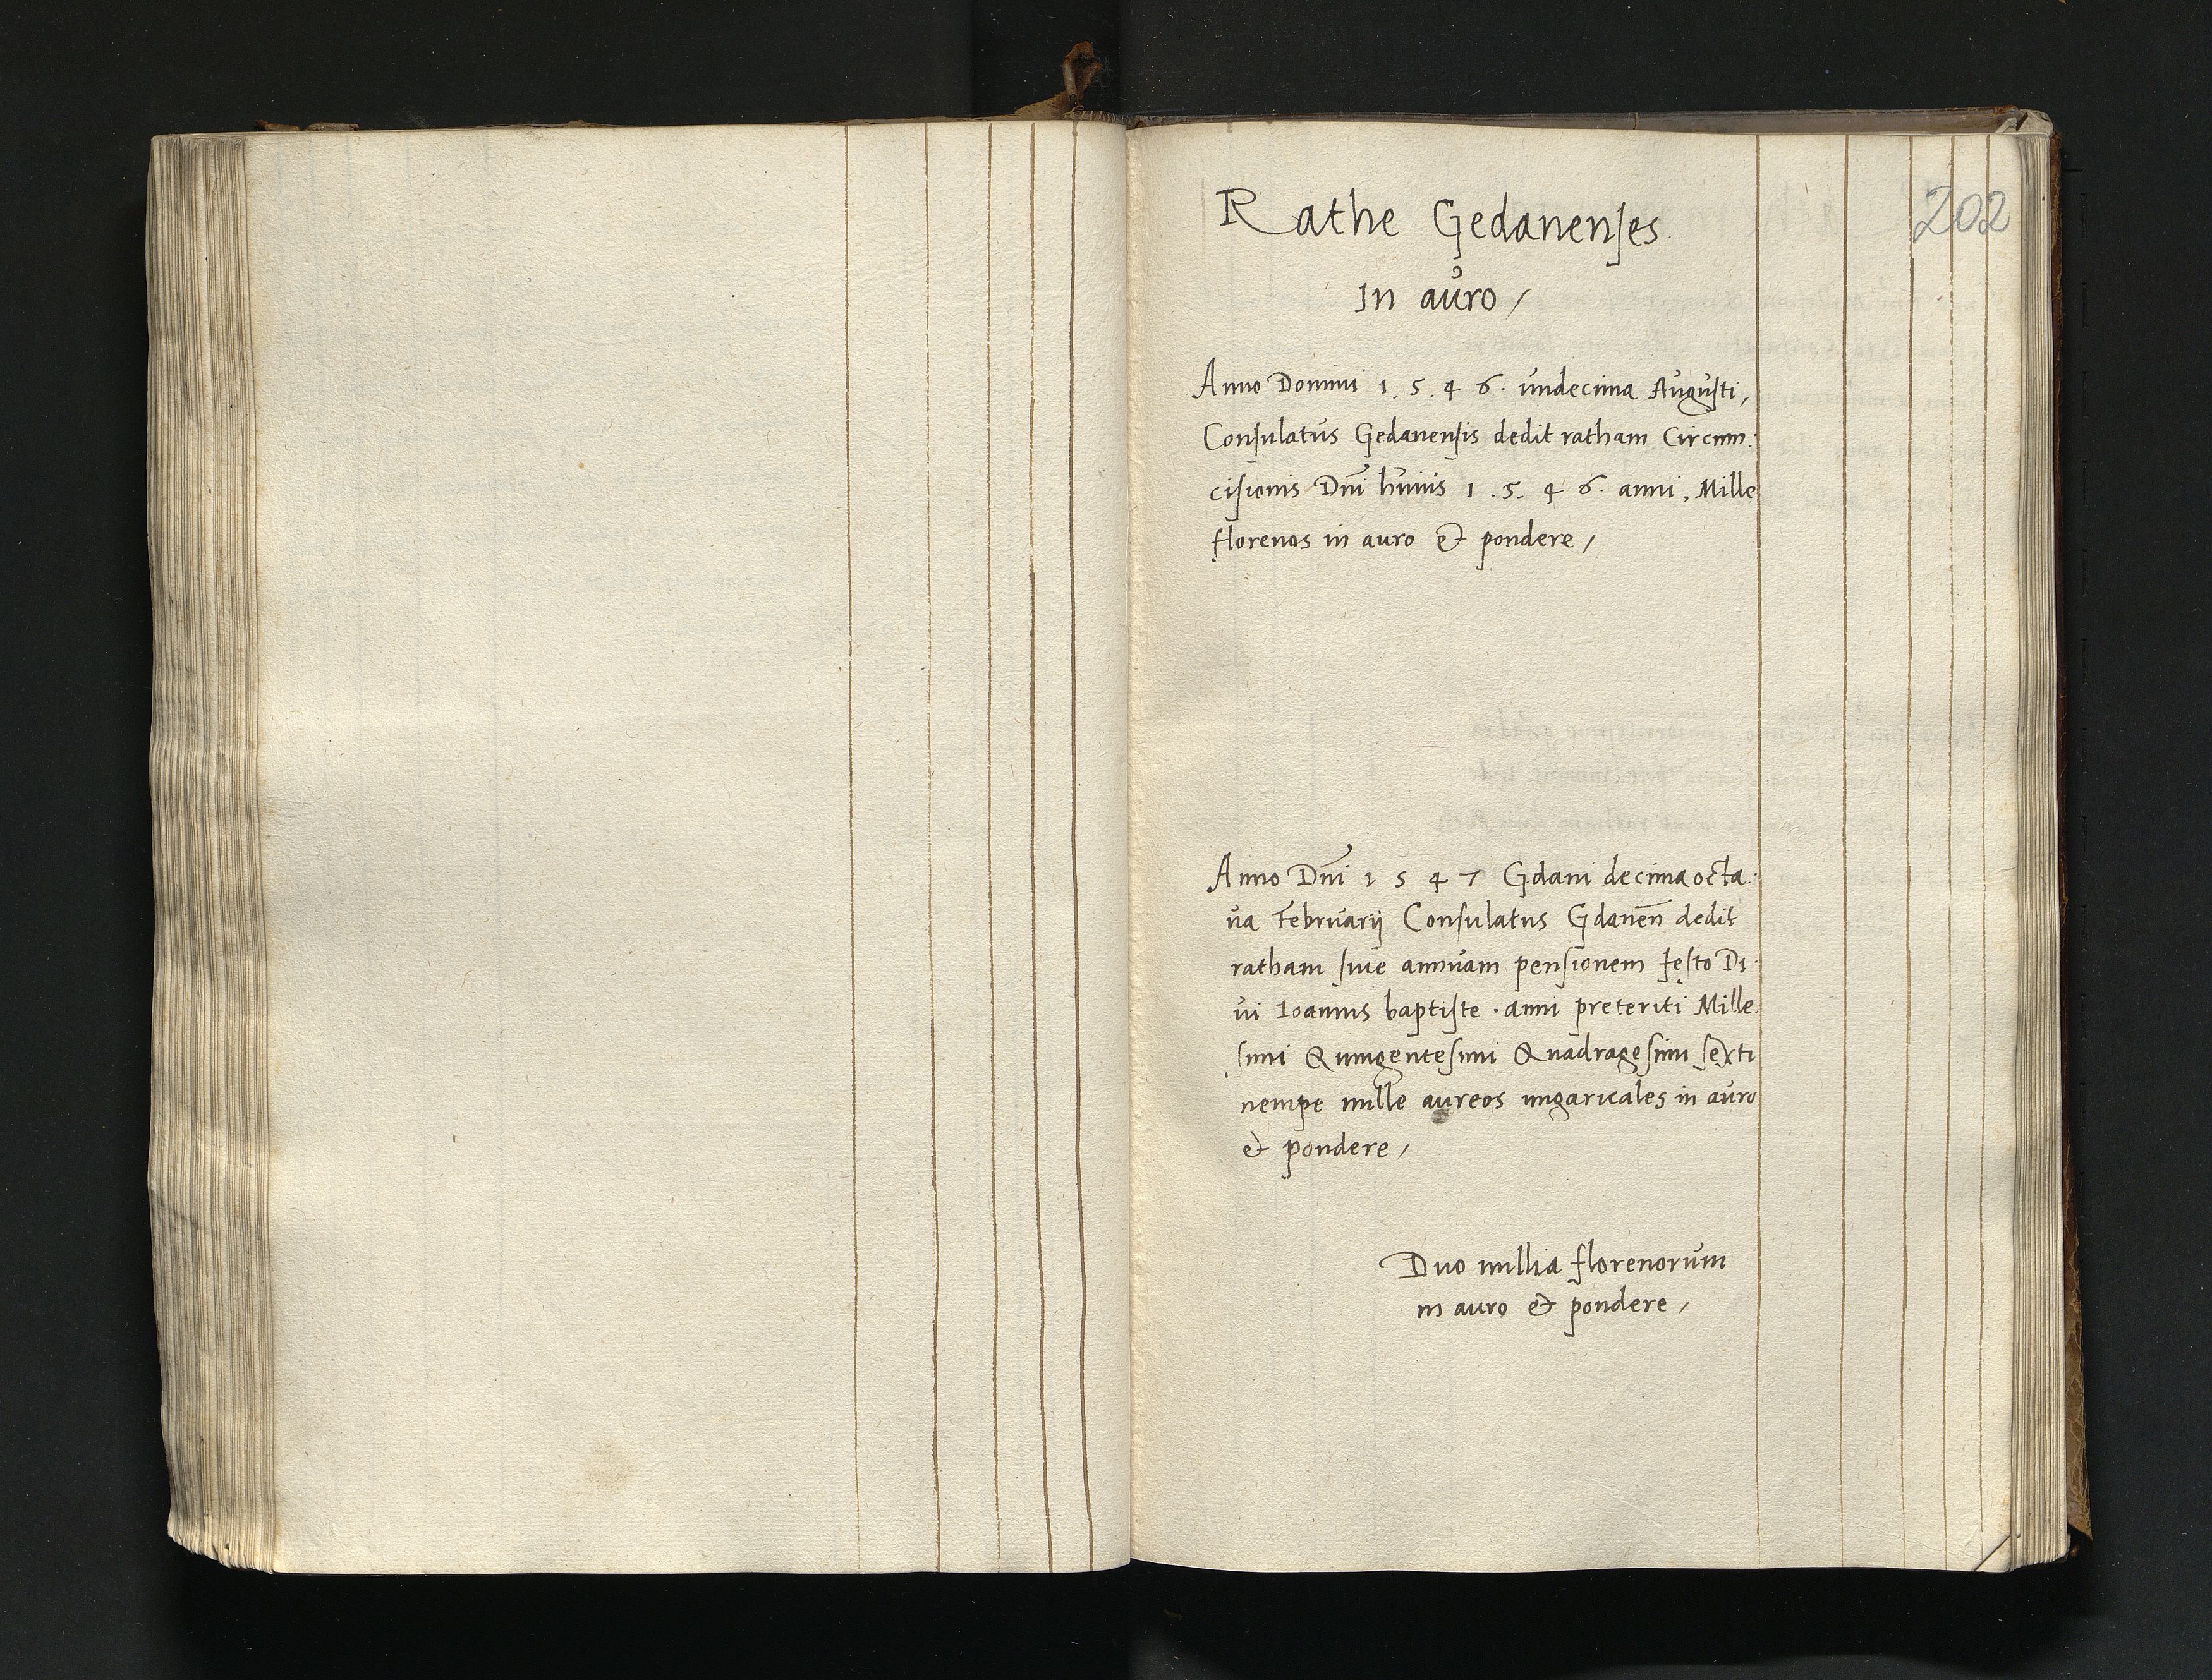 202
Rathe Gedanenſes
In auro /
Anno Domini 1. 5. 4 6. undecima Auguſti,
Conſulatus Gedanenſis dedit ratham Circum:
ciſionis Dn̄i huius 1. 5. 4 6. anni, Mille
florenos in auro & pondere /
Anno Dn̄i 1 5 4 7 Gdani decima octa:
va Februarij Conſulatus Gdanen̄ dedit
ratham ſiue annuam penſionem feſto Di:
vi Ioannis baptiſte . anni preteriti Mille:
ſimi Quingenteſimi Quadrageſimi ſexti
nempe mille aureos ungaricales in auro
& pondere /
Duo millia florenorum
in auro & pondere /